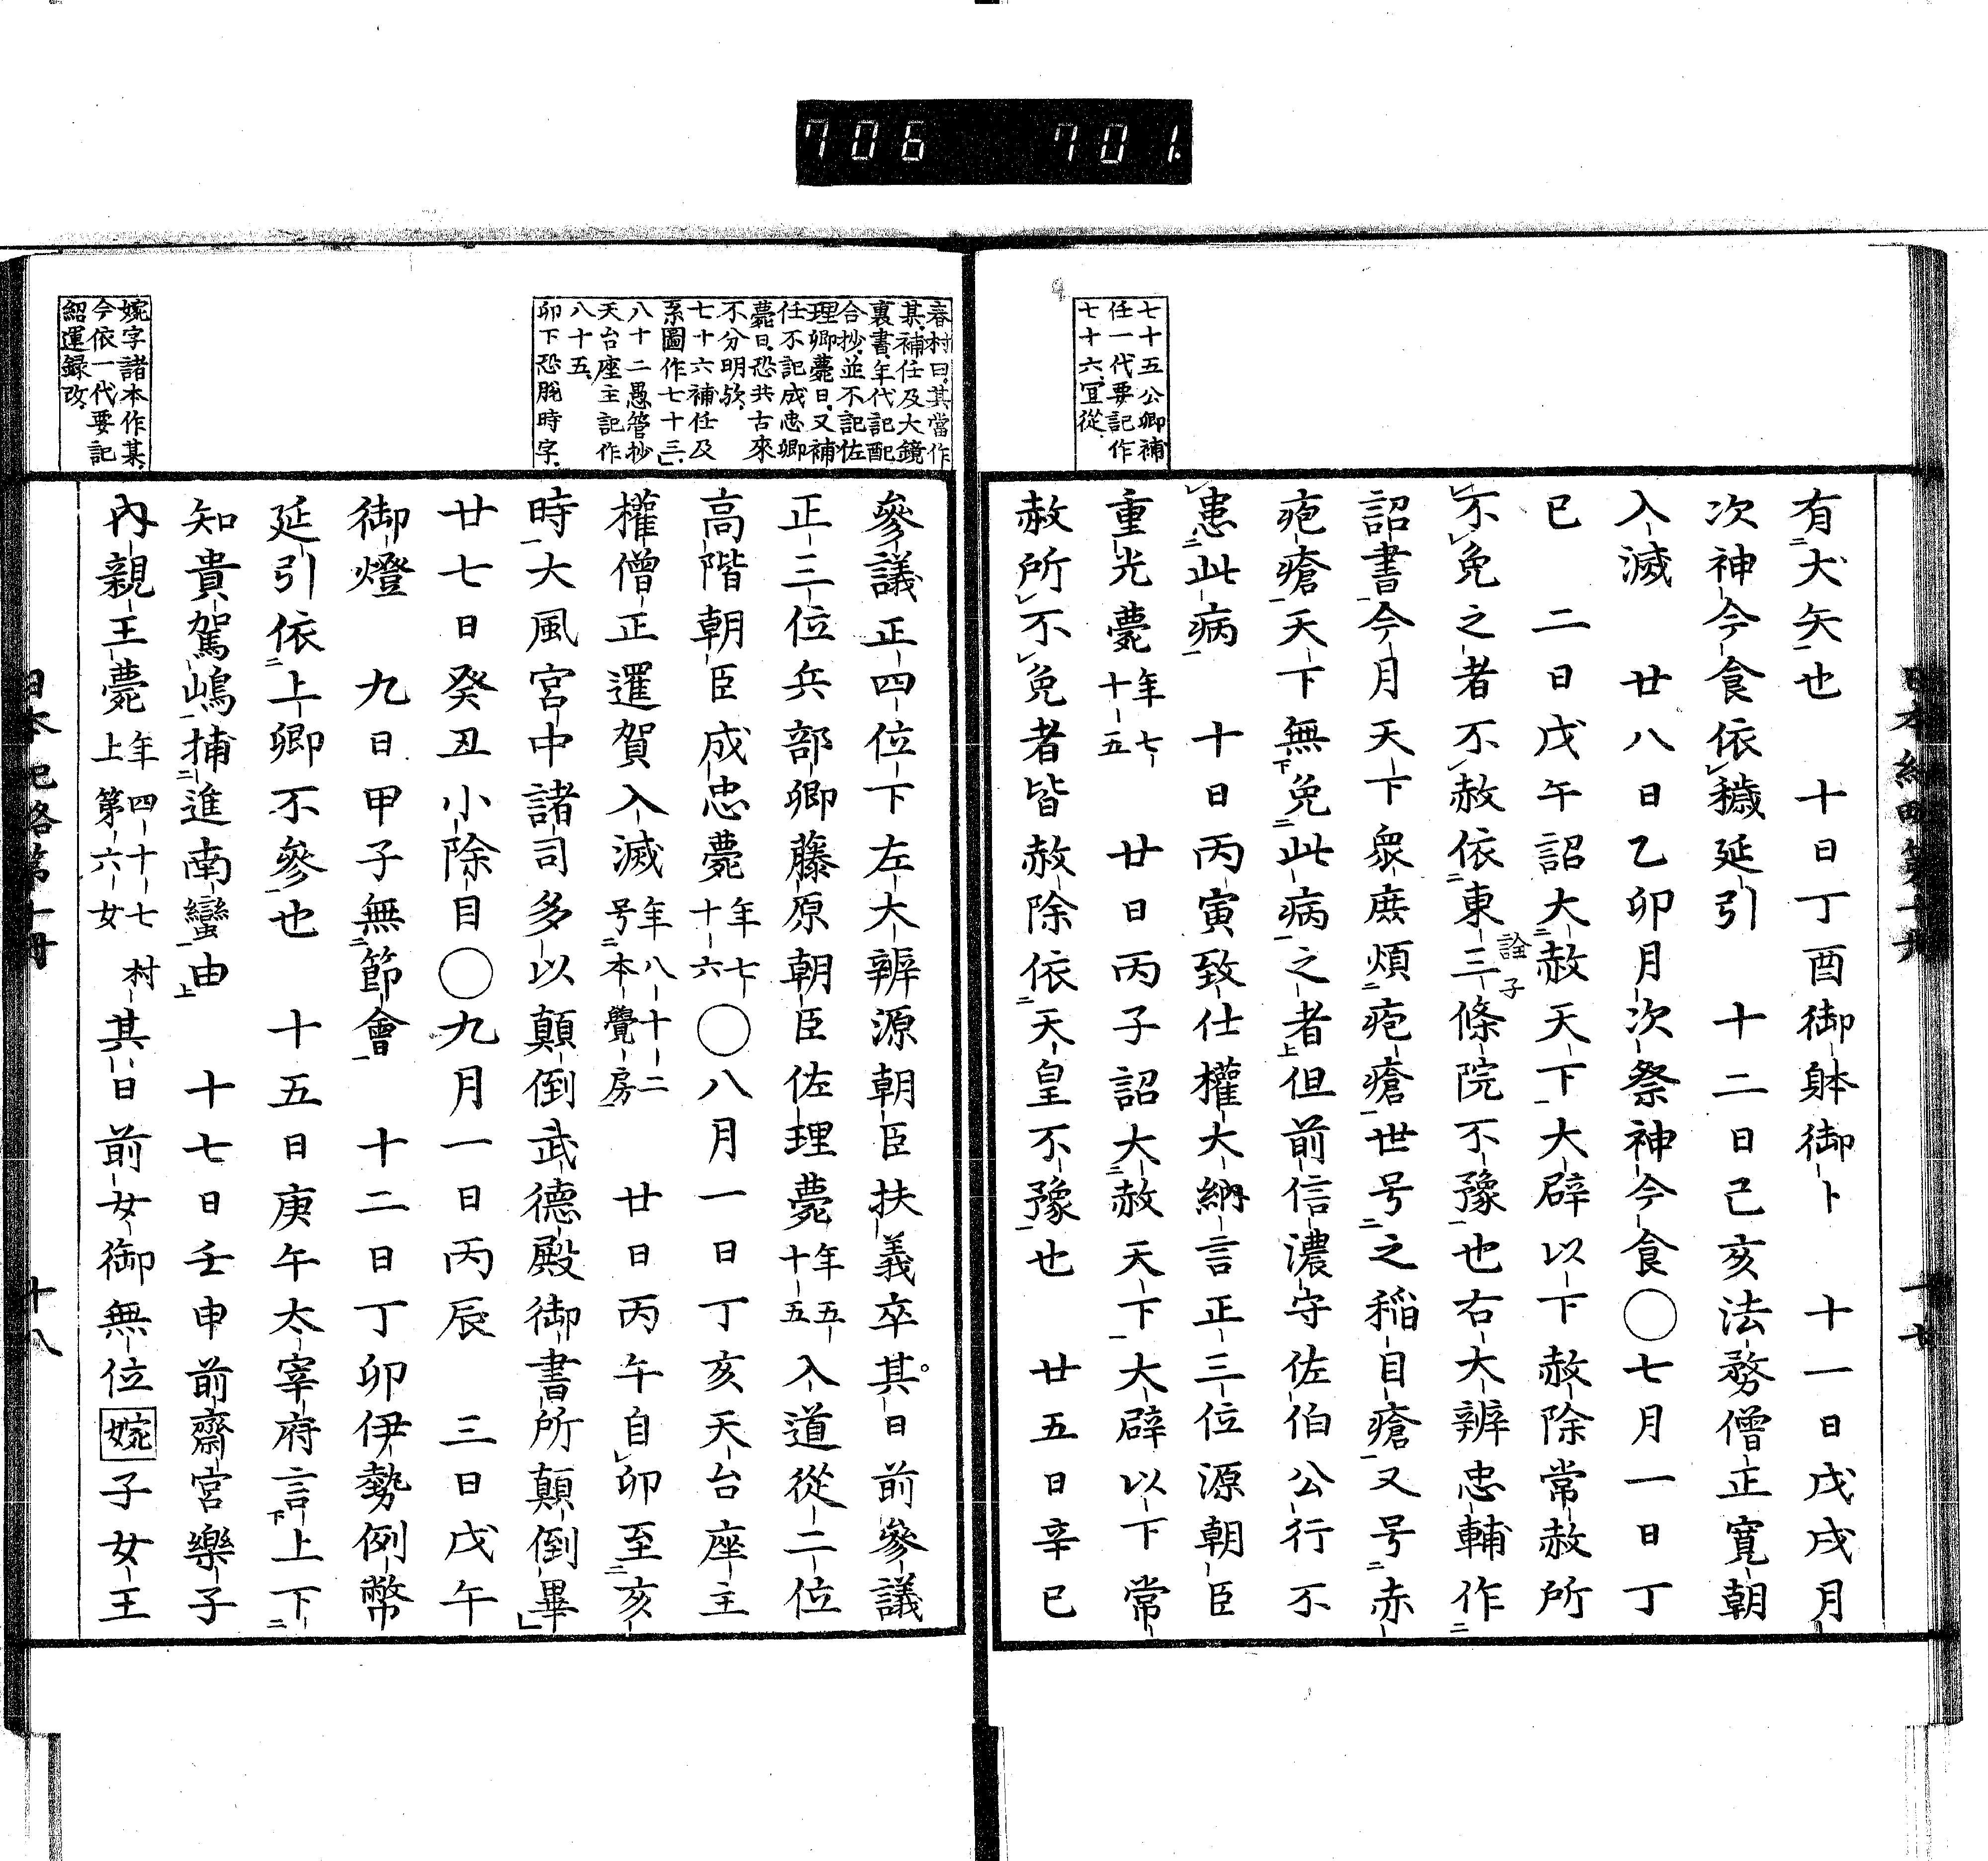 706 701.
日本紀略第十册 十七
七十五公卿補
任一代要記作
七十六冝從
有犬矢也 十日丁酉御躰御卜 十一日戊戌月
次神今食依穢延引 十二日己亥法務僧正寛朝
入滅 廿八日乙卯月次祭神今食○七月一日丁
巳 二日戊午詔大赦天下大辟以下赦除常赦所
不免之者不赦依東三條院詮子不豫也右大辨忠輔作
詔書今月天下衆庶煩疱瘡世号之稲目瘡又号赤
疱瘡天下無免此病之者但前信濃守佐伯公行不
患此病 十日丙寅致仕權大納言正三位源朝臣
重光薨年七十五 廿日丙子詔大赦天下大辟以下常
赦所不免者皆赦除依天皇不豫也 廿五日辛巳
春村曰其當作
某補任及大鏡
裏書年代記配
合抄並不記佐
理卿薨日又補
任不記成忠卿
薨日恐共古來
不分明欤
七十六補任及
系圖作七十三
八十二愚管抄
天台座主記作
八十五
卯下恐脱時字
參議正四位下左大辨源朝臣扶義卒其日前參議
正三位兵部卿藤原朝臣佐理薨年五十五入道從二位
高階朝臣成忠薨年七十六○八月一日丁亥天台座主
權僧正暹賀入滅年八十二号本覺房 廿日丙午自卯至亥
時大風宮中諸司多以顛倒武德殿御書所顛倒畢
廿七日癸丑小除目○九月一日丙辰 三日戊午
御燈 九日甲子無節會 十二日丁卯伊勢例幣
延引依上卿不參也 十五日庚午太宰府言上下
知貴駕嶋捕進南蠻由 十七日壬申前齋宮樂子
內親王薨年四十七村上第六女 其日前女御無位婉子女王
婉字諸本作某
今依一代要記
紹運録改
日本紀略第十册 十八